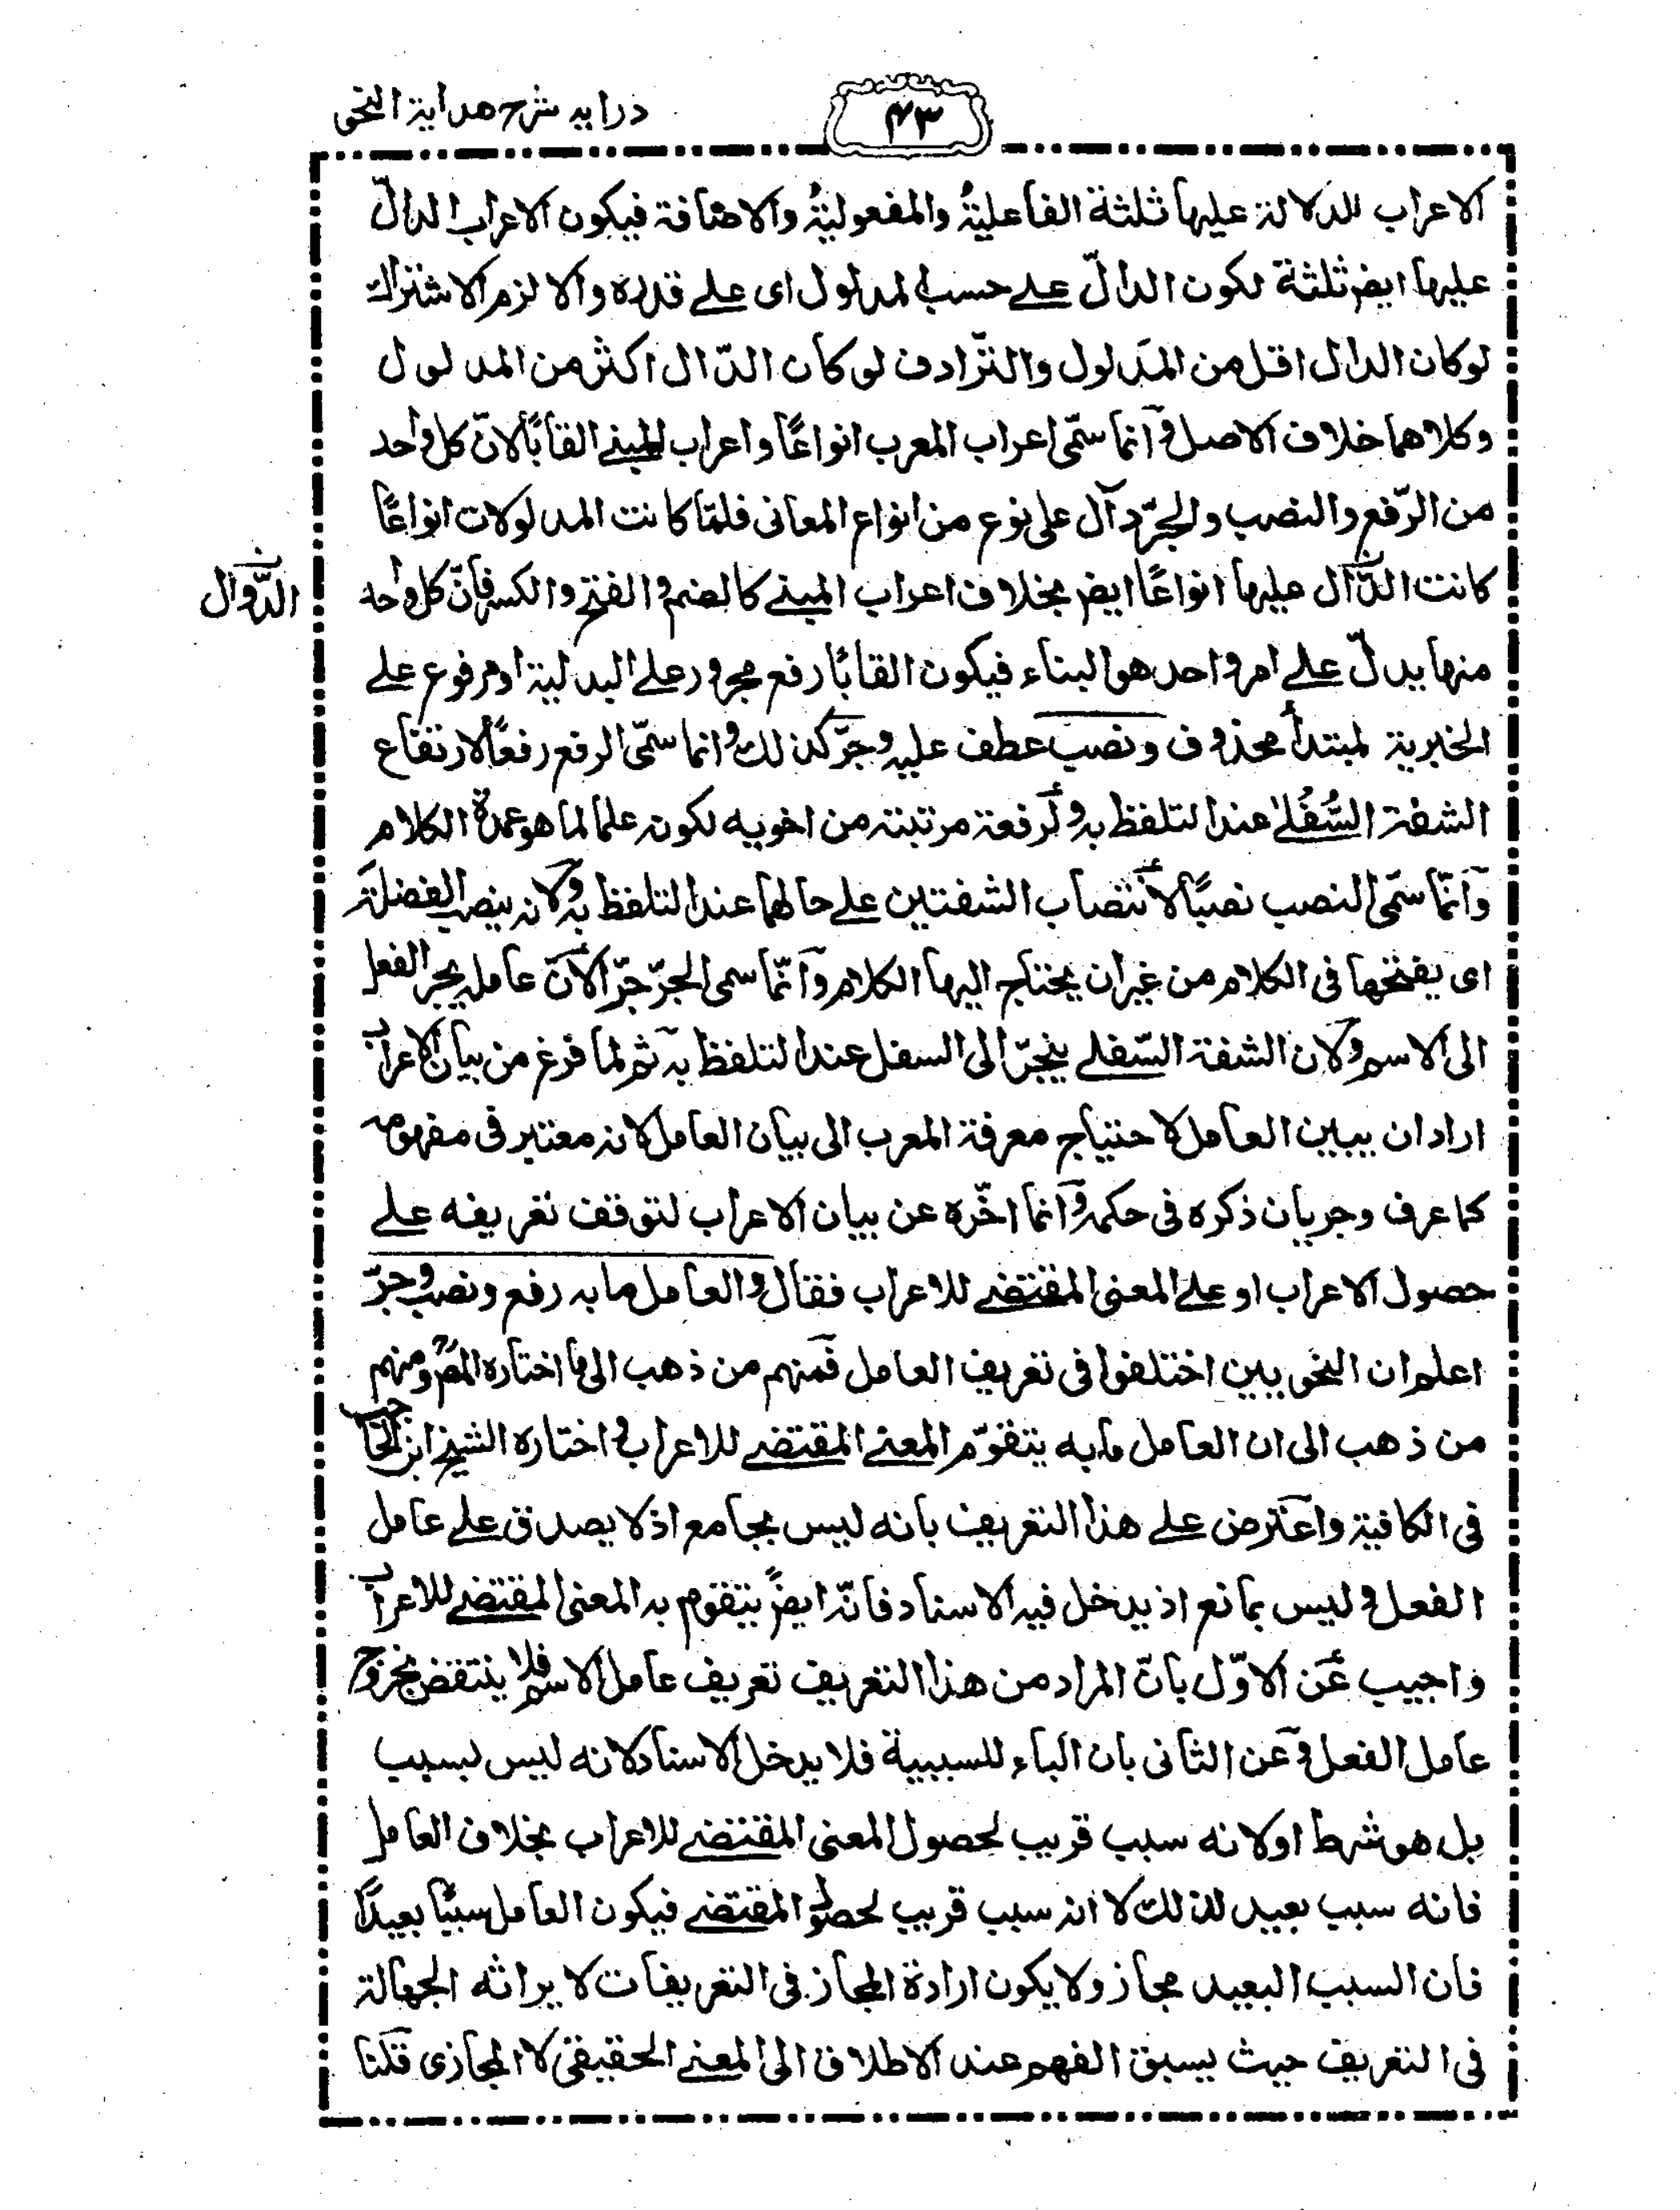 درايه شرح هداية النحو
۴۳
الاعراب للدلالة عليها ثلثة الفاعليةُ والمفعوليةُ والاضافة فيكون الاعراب الدالّ
عليها ايضر ثلثة لكون الدالّ على حسب المدلول اى على قدره وآلا لزم الاشتراك
لو كان الدال اقل من المدلول والترادف لو كان الدّال اكثر من المدلول
وكلاهما خلاف الاصل وآنما سمّى اعراب المعرب انواعًا واعراب المبنى القابًا لانّ كل واحد
من الرّفع والنصب والجرّ دآل على نوع من انواع المعانى فلمّا كانت المدلولات انواعًا
كانت الدّآل عليها انواعًا ايضر بخلاف اعراب المبنى كالضم والفتح والكسر فانّ كل واحد
الدَّوال
منها يدلّ على امر واحد هو البناء فيكون القابًا رفع مجرور على البدلية او مرفوع على
الخبرية لمبتدأ محذوف ونصب عطف عليه وجرّ كذلك وانما سمّى الرفع رفعًا لارتفاع
الشفة السُّفْلىٰ عند التلفظ به ولرفعة مرتبته من اخويه لكونه علما لما هو عمدة الكلام
وآنّما سمّى النصب نصبًا لانتصاب الشفتين على حالهما عند التلفظ به ولانه ينصب الفضلة
اى يفتحها فى الكلام من غير ان يحتاج اليها الكلام وآنّما سمى الجرّ جرّا لآنّ عامله يجر الفعل
الى الاسم ولان الشفة السّفلى ينجرّ الى السفل عند التلفظ به ثم لما فرغ من بيان الاعراب
اراد ان يبين العامل لاحتياج معرفة المعرب الى بيان العامل لانه معتبر فى مفهومه
كما عرف وجريان ذكره فى حكمه وآنما اخّره عن بيان الاعراب لتوقف تعريفه على
حصول الاعراب او على المعنى المقتضى للاعراب فقال والعامل ما به رفع ونصب وجرّ
اعلم ان النحويين اختلفوا فى تعريف العامل فمنهم من ذهب الى ما اختاره المصرح ومنهم
من ذهب الى ان العامل ما به يتقوّم المعنى المقتضى للاعراب واختاره الشيخ ابن الحاجب
فى الكافية واعترض على هذا التعريف بانه ليس بجامع اذ لا يصدق على عامل
الفعل وليس بمانع اذ يدخل فيه الاسناد فانّه ايضرً يتقوم به المعنى المقتضى للاعراب
واجيب عن الاوّل بانّ المراد من هذا التعريف تعريف عامل الاسم فلا ينتقض بخروج
عامل الفعل وعن الثانى بان الباء للسببية فلا يدخل الاسناد لانه ليس بسبب
بل هو شرط اولانه سبب قريب لحصول المعنى المقتضى للاعراب بخلاف العامل
فانه سبب بعيد لذلك لا انه سبب قريب لحصول المقتضى فيكون العامل سببًا بعيدًا
فان السبب البعيد مجاز ولا يكون ارادة المجاز فى التعريفات لايراثه الجهالة
فى التعريف حيث يسبق الفهم عند الاطلاق الى المعنى الحقيقى لا المجازى قلنا